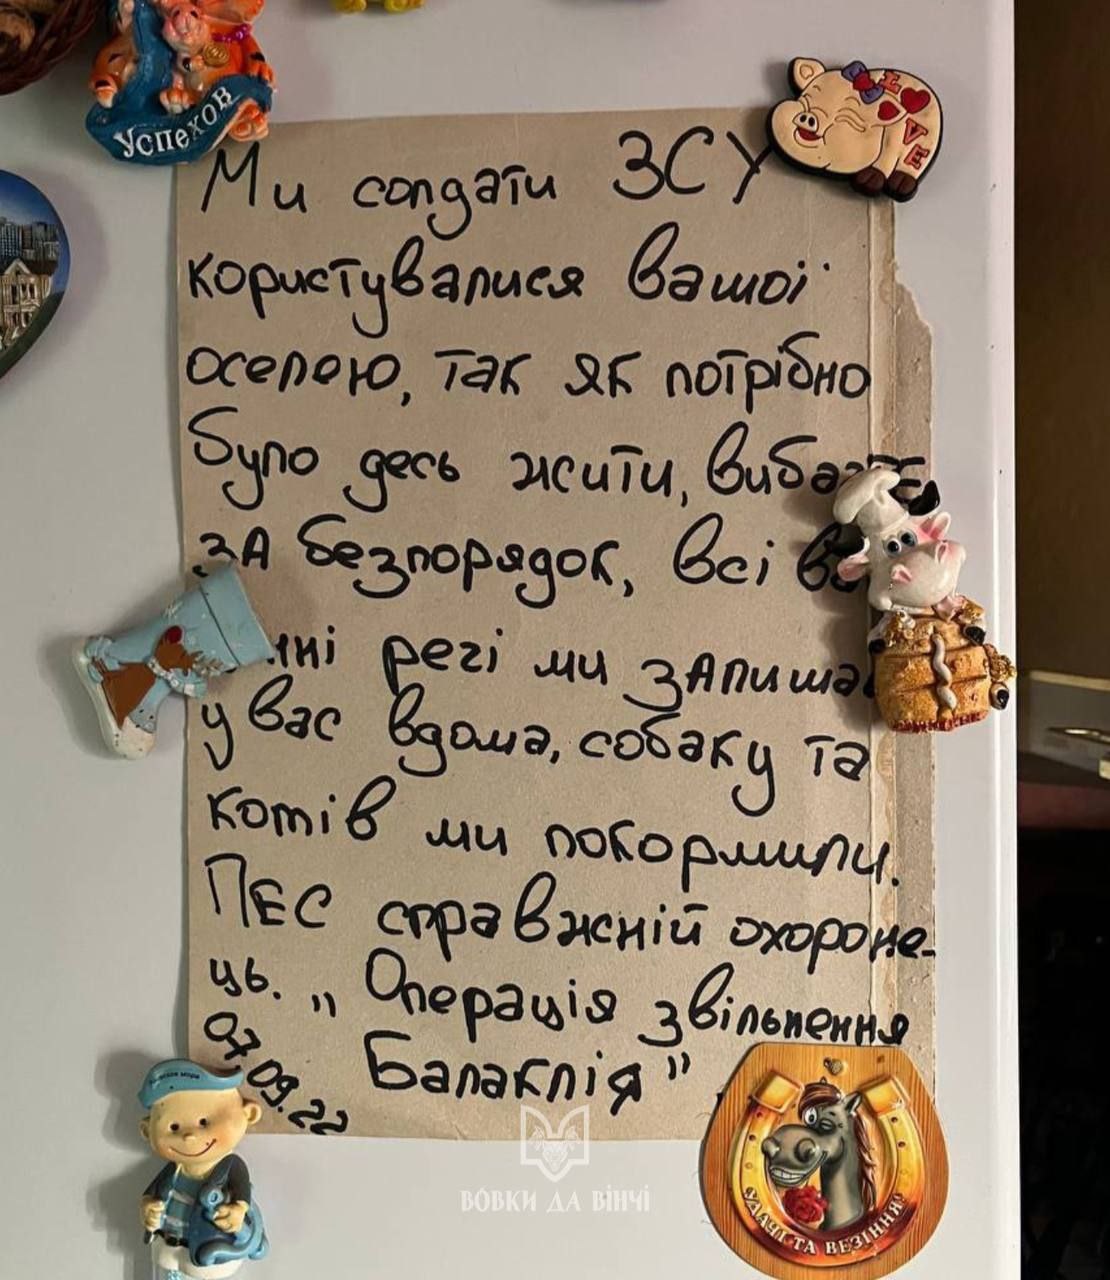 Успехов
LOVE
Ми солдати ЗСУ
користувалися вашої
оселею, так як потрібно
було десь жити,
за безпорядок, всі
речі ми
у вас вдома, собаку та
котів ми покормили.
ПЕС справжній охороне-
ць. „ Операція звільнення
Балаклія"
07.09.22
ВОВКИ ДА ВІНЧІ
УДАЧІ ТА ВЕЗІННЯ!